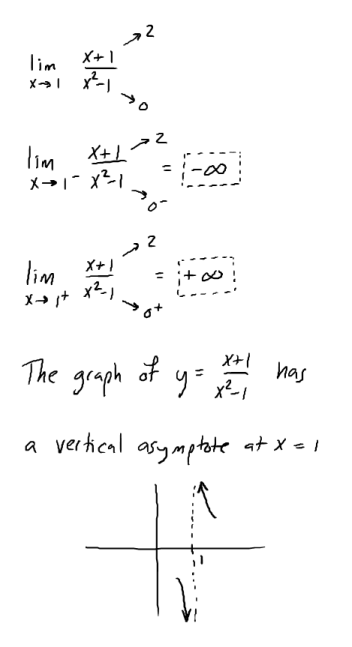 lim x→1 (x+1)/(x²-1) ↗2 ↘0
lim x→1⁻ (x+1)/(x²-1) ↗2 ↘0⁻ = -∞
lim x→1⁺ (x+1)/(x²-1) ↗2 ↘0⁺ = +∞
The graph of y = (x+1)/(x²-1) has
a vertical asymptote at x = 1
1